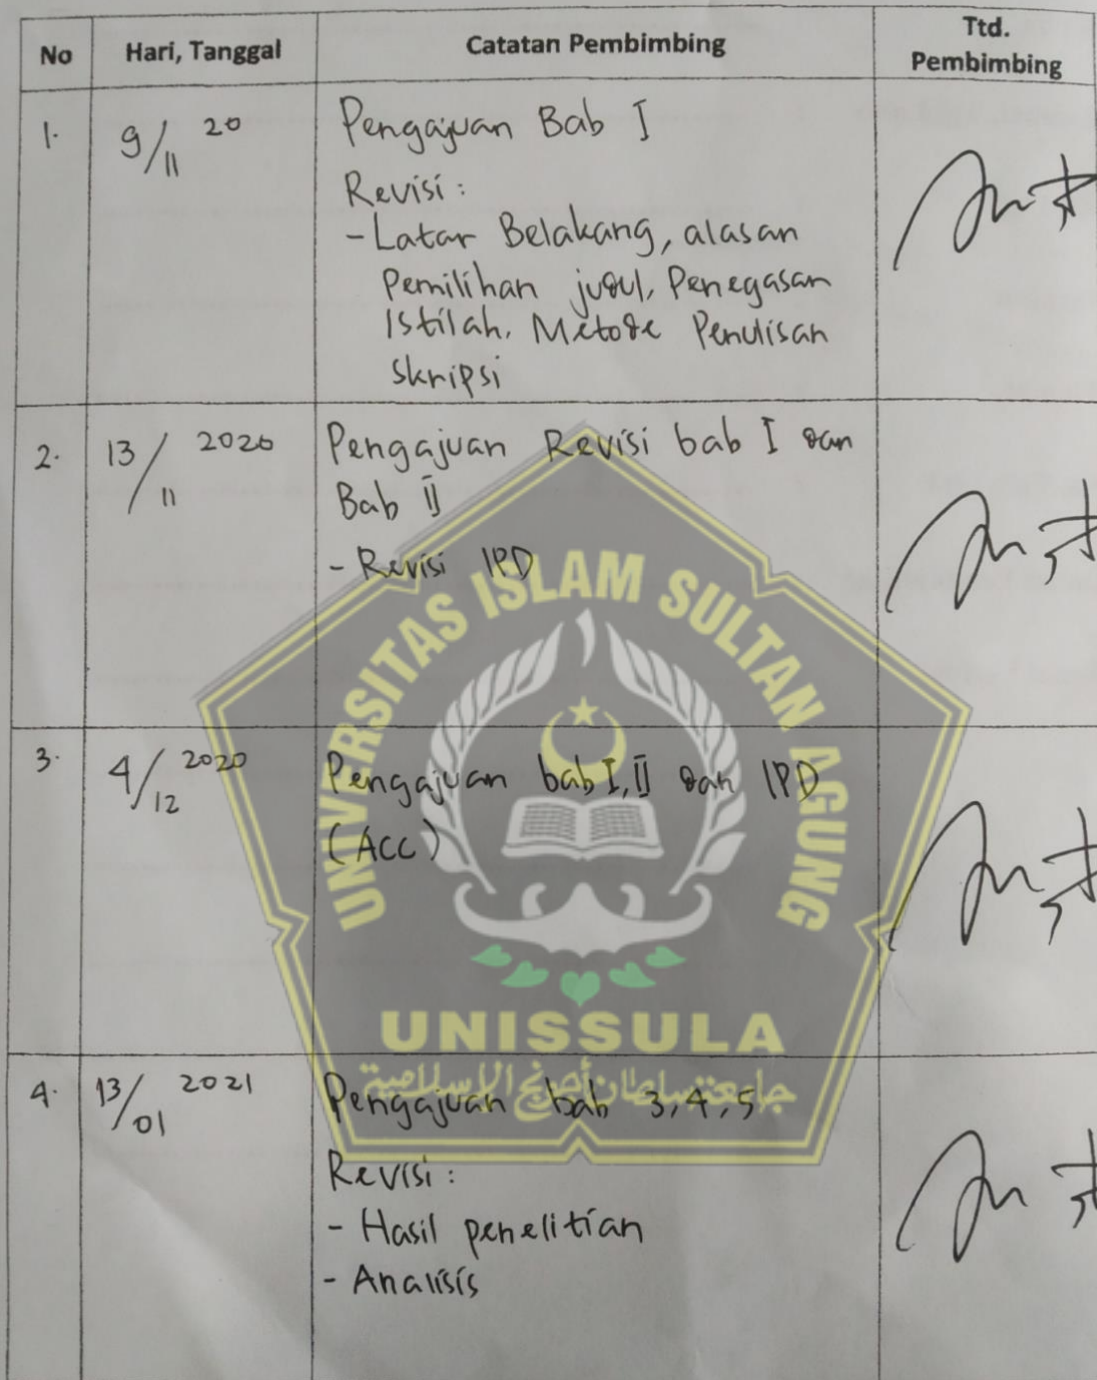 No Hari, Tanggal Catatan Pembimbing Ttd.
Pembimbing
1. 9/11 20 Pengajuan Bab I
Revisi :
- Latar Belakang, alasan
Pemilihan judul, Penegasan
Istilah, Metode Penulisan
Skripsi
2. 13/11 2020 Pengajuan Revisi bab I dan
Bab II
- Revisi IPD
3. 4/12 2020 Pengajuan bab I, II dan IPD
(ACC)
4. 13/01 2021 Pengajuan bab 3,4,5
Revisi :
- Hasil penelitian
- Analisis
UNIVERSITAS ISLAM SULTAN AGUNG
UNISSULA
جامعتنسلطان أجونج الإسلامية